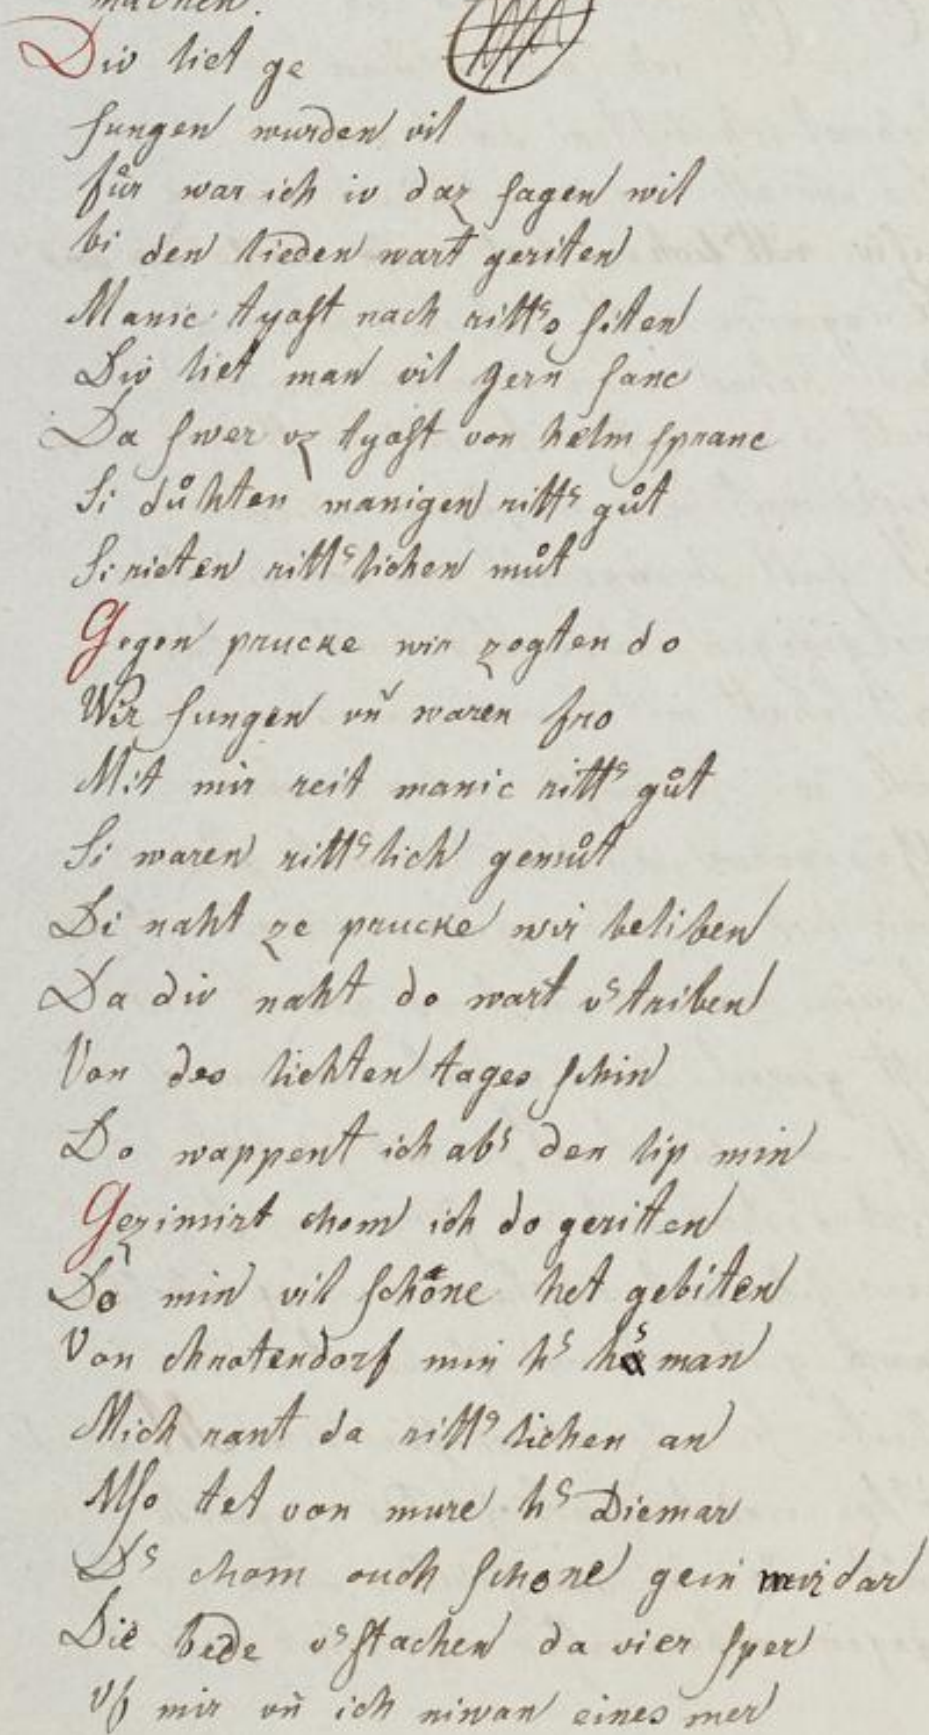 machen.
Div liet ge
sungen wurden vil
fůr war ich iv daz sagen wil
bi den lieden wart geriten
Manic tyost nach rittˢs siten
Div liet man vil gern sanc
Da swer vz tyost von helm spranc
Si důhten manigen rittˢ gůt
Si rieten rittˢlichen můt
Gegen prucke wir zogten do
Wir sungen vn̄ waren fro
Mit mir reit manic rittˢ gůt
Si waren rittˢlich gemůt
Di naht ze prucke wir beliben
Da div naht do wart vˢtriben
Von des liehten tages schin
Do wappent ich abˢ den lip min
Gezimirt chom ich do geritten
Do min vil schöne het gebiten
Von chrotendorf min hˢ hˢman
Mich rant da rittˢlichen an
Also tet von mure hˢ Diemar
Dˢ chom ouch schone gein mir dar
Die bede vˢstachen da vier sper
Vf mir vn̄ ich niwan eines mer